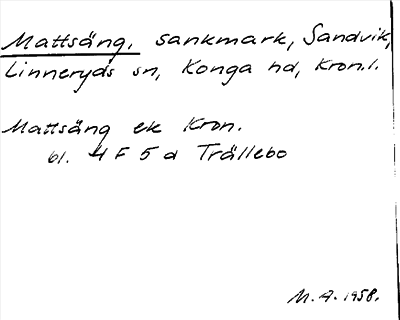 Mattsäng, sankmark, Sandvik,
Linneryds sn, Konga hd, Kron.l.
Mattsäng ek Kron.
bl. 4 F 5 d Trällebo
M.A. 1958.